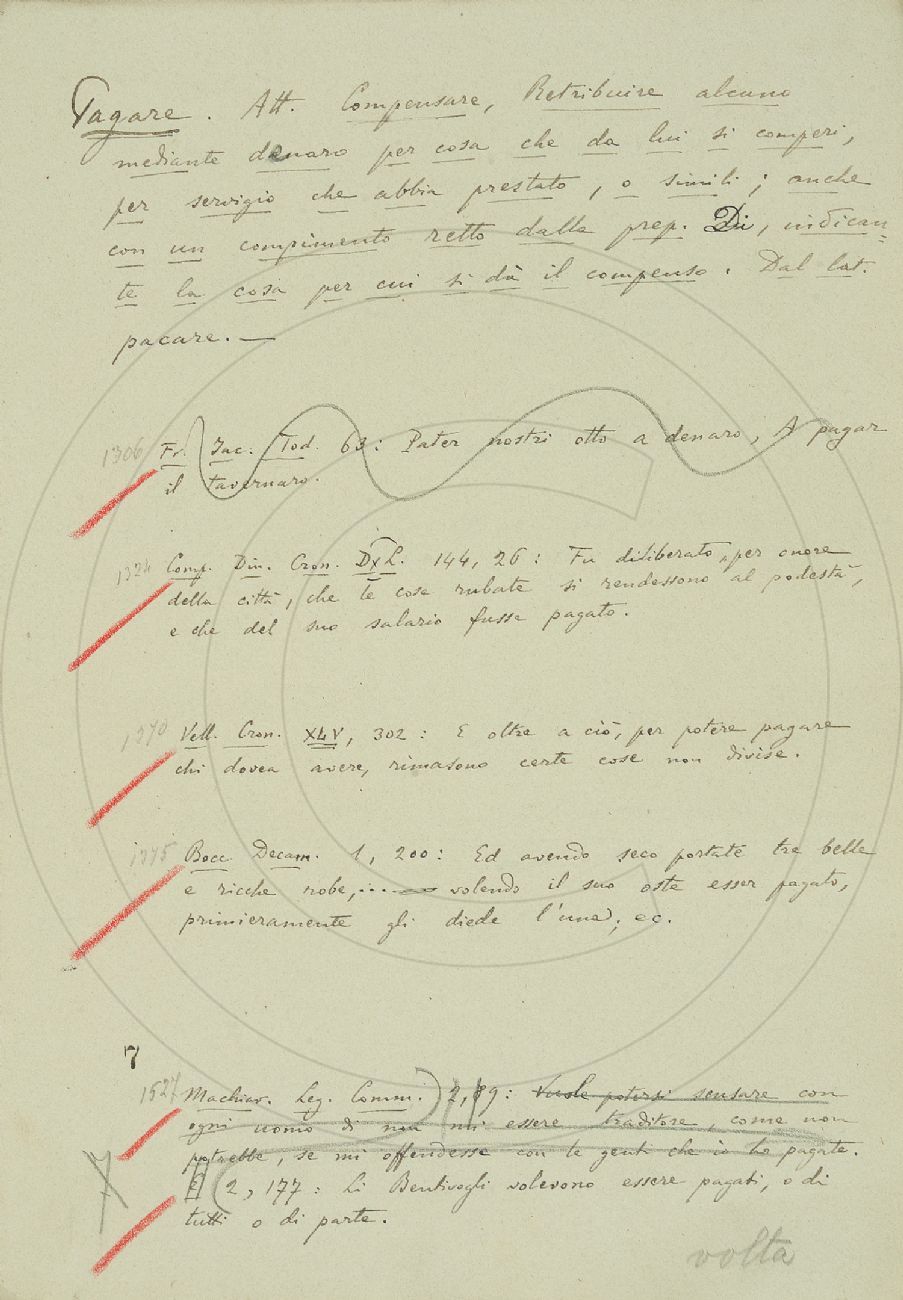 Pagare. Att. Compensare, Retribuire alcuno
mediante denaro per cosa che da lui si comperi,
per servigio che abbia prestato, o simili; anche
con un compimento retto dalla prep. Di, indican=
te la cosa per cui si dà il compenso. Dal lat.
pacare. —
1306 Fr. Jac. Tod. 63: Pater nostri otto a denaro, A pagar
il tavernaro.
1324 Comp. Din. Cron. DxL. 144, 26: Fu diliberato, per onore
della città, che le cose rubate si rendessono al podestà,
e che del suo salario fusse pagato.
1370 Vell. Cron. XLV, 302: E oltre a ciò, per potere pagare
chi dovea avere, rimasono certe cose non divise.
1375 Bocc. Decam. 1, 200: Ed avendo seco portate tre belle
e ricche robe, ..... volendo il suo oste esser pagato,
primieramente gli diede l'una, ec.
7
1527 Machiav. Leg. Comm. 2, 89: Vuole potersi scusare con
ogni uomo di non mi essere traditore, come non
potrebbe, se mi offendesse con le genti che io ho pagate.
E 2, 177: Li Bentivogli volevono essere pagati, o di
tutti o di parte.
volta